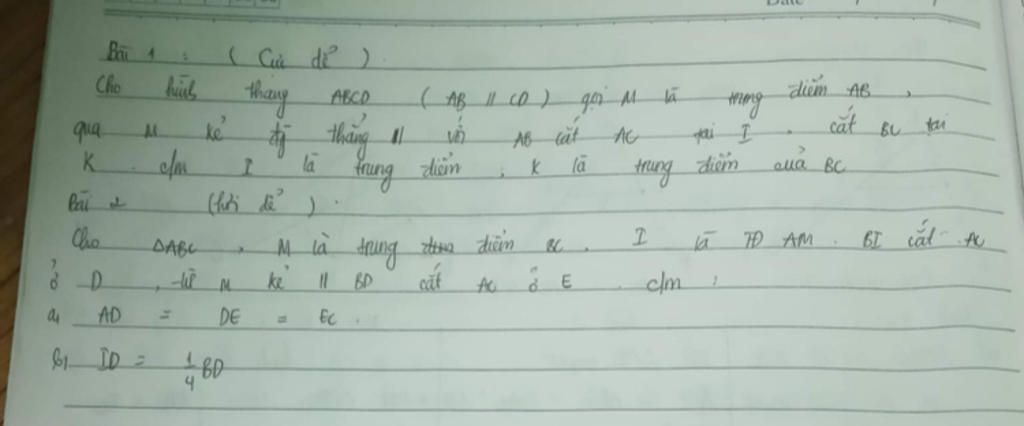 Date
Bài 1 : ( Cực dễ )
Cho hình thang ABCD ( AB // CD ) gọi M là trung điểm AB ,
qua M kẻ đg thẳng // với AB cắt AC tại I . cắt BC tại
K . c/m I là trung điểm , K là trung điểm cuả BC
Bài 2 (hơi dễ ) .
Cho ΔABC , M là trung điểm BC . I là TĐ AM . BI cắt AC
ở D , từ M kẻ // BD cắt AC ở E . c/m :
a, AD = DE = EC .
b, ID = 1/4 BD